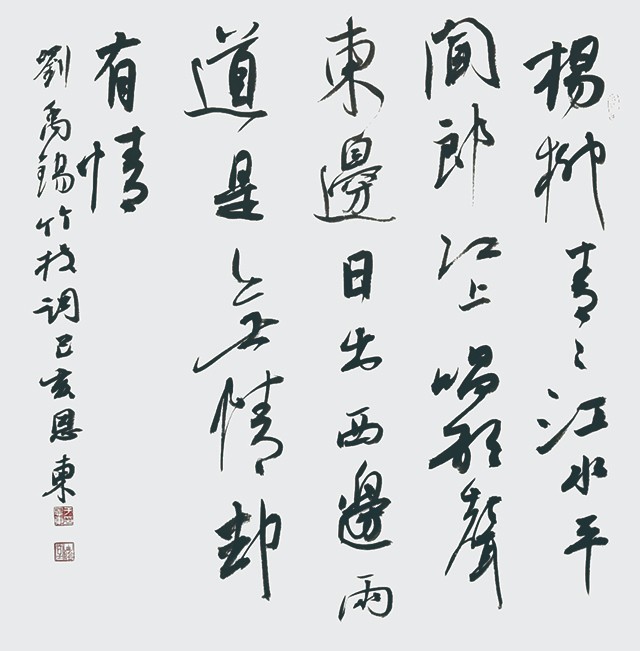 楊柳青〻江水平
聞郎江上唱歌聲
東邊日出西邊雨
道是無情却
有情
劉禹錫竹枝詞己亥恩東